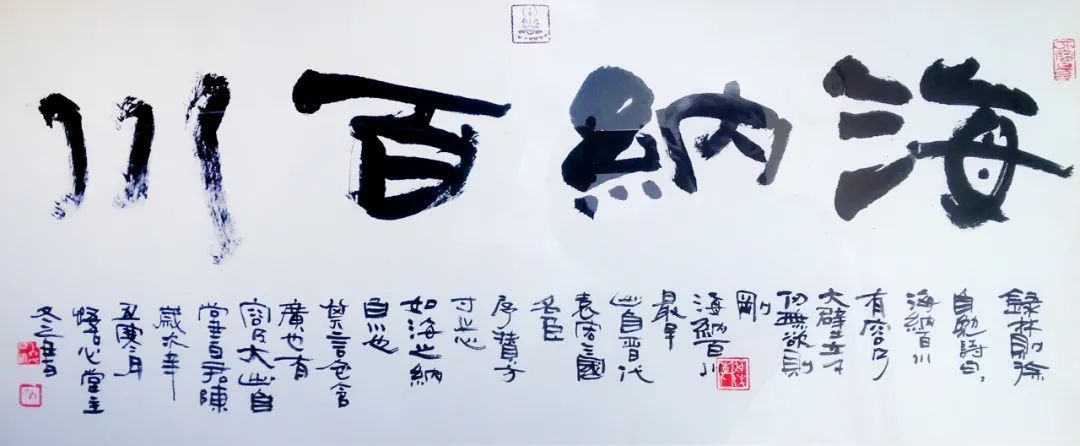 海納百川
錄林則徐
自勉詩句，
海納百川
有容乃
大壁立千
仞無欲則
剛
海納百川
最早
出自晉代
袁宏三國
名臣
序方
寸之心
如海之納
百川也
其言包含
廣也有
容乃大出自
尚書君陳
歲次辛
丑寒月
心堂主